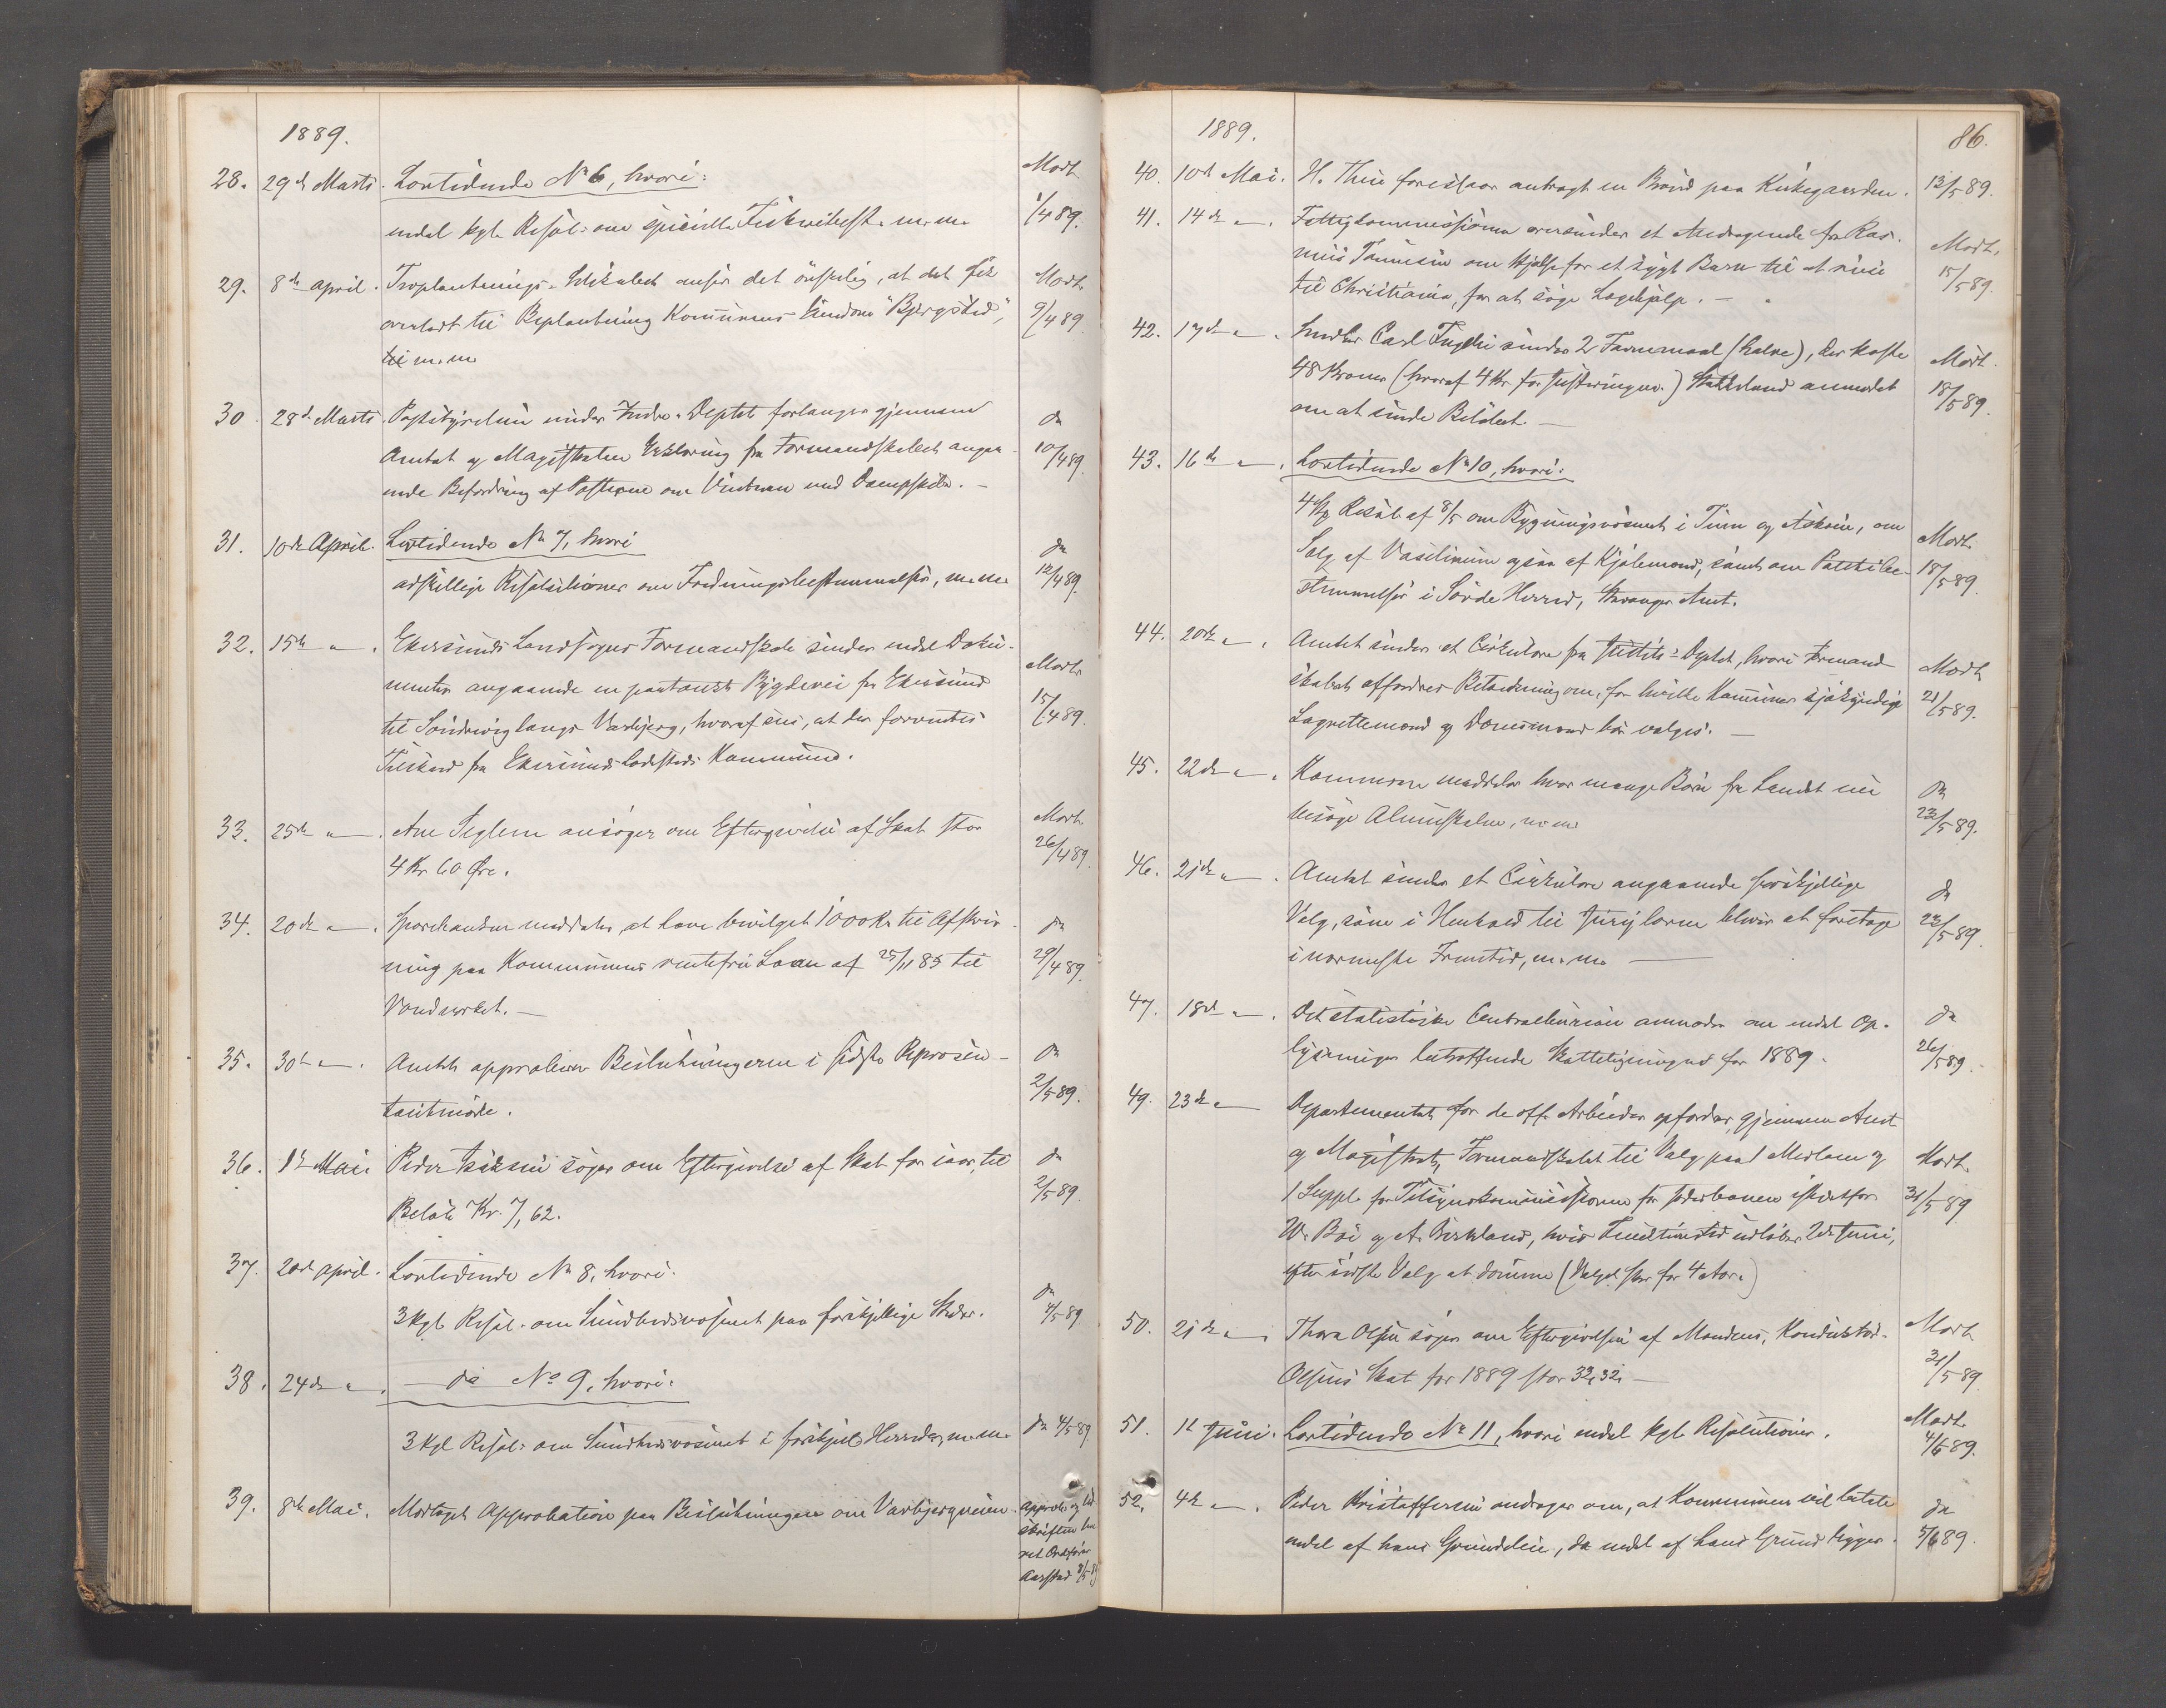 1889.
28. 29de Marts. Lovtidende No 6, hvori: Modt.
endel kgl. Resol. om specielle Fiskeribest. m.m. 1/4 89.
29. 8de April. Træplantnings-Selskabet anser det ønskelig, at det fik Modt.
overladt til Beplantning Kommunens Eiendom "Bjergsted", 9/4 89.
til m.m.
30. 28de Marts. Poststyrelsen under Indre-Deptet forlanger gjennem Do
Amtet og Magistraten Erklæring fra Formandskabet angaa- 10/4 89.
ende Befordring af Posterne om Vinteren med Dampskibe. —
31. 10de April. Lovtidende No 7, hvori Do
adskillige Resolutioner om Fredningsbestemmelser, m.m. 12/4 89.
32. 15de " . Ekersunds Landsogns Formandskab sender endel Doku-
menter angaaende en paatænkt Bygdevei fra Ekersund Modt.
til Søndrevig langs Varbjerg, hvoraf sees, at der forventes 15/4 89.
Tilskud fra Ekersunds Ladesteds Kommune.
33. 25de " . Ane Seglem ansøger om Eftergivelse af Skat stor Modt.
4 Kr 60 Øre. 26/4 89.
34. 20de " . Sparebanken meddeler, at have bevilget 1000 Kr. til Afskriv- Do
ning paa Kommunens rentefri Laan af 25/11 85 til 29/4 89.
Vandverket. —
35. 30te " . Amtet approberer Beslutningerne i sidste Repræsen- Do
tantmøde. 2/5 89.
36. 1ste Mai Peder Isaksen søger om Eftergivelse af Skat for iaar, til Do
Beløb Kr. 7,62. 2/5 89.
37. 20de April. Lovtidende No 8, hvori: Do
3 kgl. Resol. om Sundhedsvæsenet paa forskjellige Steder. 4/5 89
38. 24de " . — do No 9, hvori:
3 kgl. Resol. om Sundhedsvæsenet i forskjel. Herreder, m.m. Do 4/5 89
39. 8de Mai. Modtaget Approbation paa Beslutningen om Varbjergveien. Approb. og
skriften
Ordfører
Aarstad 8/5 89
1889. 86.
40. 10de Mai. H. Thu foreslaar anbragt en Brønd paa Kirkegaarden. 12/5 89.
41. 14de " . Fattigkommissionen oversender et Andragende fra Ras- Modt.
mus Tønnesen om Hjælp for et sygt Barn til at reise 15/5 89.
til Christiania, for at søge Lægehjælp. —
42. 17de " . Carl Fuglli sender 2 Favnemaal (halve), der koste Modt.
48 Kroner (hvoraf 4 Kr. for Justeringen.) anmodet 18/5 89.
om at sende Beløbet. —
43. 16de " . Lovtidende No 10, hvori:
4 kgl. Resol. af 8/5 om Bygningsvæsenet i Tinn og Askim, om Modt.
Salg af Vaselinum ogsaa af Kjøbmænd, samt om Politibe- 18/5 89.
stemmelser i Søvde Herred, Stavanger Amt.
44. 20de " . Amtet sender et Cirkulære fra Justits-Deptet, hvori Formand- Modt.
skabets affordres Betænkning om, for hvilke Kommuner sjøkyndige 21/5 89.
Lagrettemænd og Domsmænd bør vælges. —
45. 22de " . meddeler hvor mange Børn fra Landet nu Do
besøge Almueskolen, m.m. 23/5 89.
46. 21de " . Amtet sender et Cirkulære angaaende forskjellige Do
Valg, som i Henhold til Juryloven bliver at foretage 23/5 89.
i nærmeste Fremtid, m.m. —
47. 18de " . Det statistiske Centralbureau anmoder om endel Op- Do
lysninger betræffende Skatteligningen for 1889. 26/5 89.
49. 23de " Departementet for de off. Arbeider opfordrer, gjennem Amt
og Magistrat, Formandskabet til Valg paa 1 Medlem og Modt.
1 Suppl. for Tilsynskommissionen for Jæderbanen istedetfor 31/5 89
W. Bøe og A. Birkland, hvis Funktionstid udløber 2de Juni,
efter sidste Valg at dømme (Valget sker for 4 Aar.)
50. 21de " . Thora Olsen søger om Eftergivelsen af Mandens, Konduktør Modt.
Olsens Skat for 1889 stor 32,32. — 31/5 89
51. 1ste Juni. Lovtidende No 11, hvori endel kgl. Resolutioner. Modt. 4/6 89.
52. 4de " . Peder Kristoffersen andrager om, at Kommunen vil betale Do
endel af hans Grundleie, da endel af hans Grund ligger. 5/6 89.